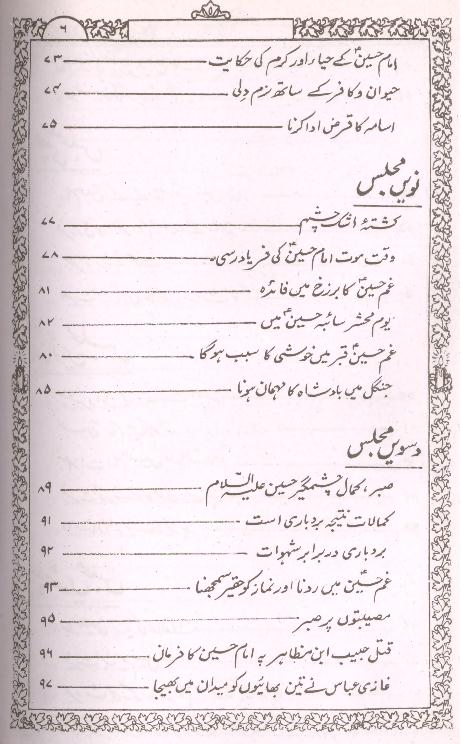 ۶
امام حسینؑ کے حیا اور کرم کی حکایت ۷۳
حیوان و کافر کے ساتھ نرم دلی ۷۴
اسامہ کا قرض ادا کرنا ۷۵
نویں مجلس
کشتۂ اشک چشم ۷۷
وقت موت امام حسینؑ کی فریاد رسی ۷۸
غم حسینؑ کا برزخ میں فائدہ ۸۱
یوم محشر سائبہ حسینؑ میں ۸۲
غم حسینؑ قبر میں خوشی کا سبب ہوگا ۸۰
جنگل میں بادشاہ کا مہمان ہونا ۸۵
دسویں مجلس
صبر، کمال چشمگیر حسین علیہ السلام ۸۹
کمالات نتیجہ بردباری است ۹۱
بردباری در برابر شہوات ۹۲
غم حسینؑ میں رونا اور نماز کو حقیر سمجھنا ۹۳
مصیبتوں پر صبر ۹۵
قتل حبیب ابن مظاہر پہ امام حسین کا فرمان ۹۶
غازی عباس نے تین بھائیوں کو میدان میں بھیجا ۹۷